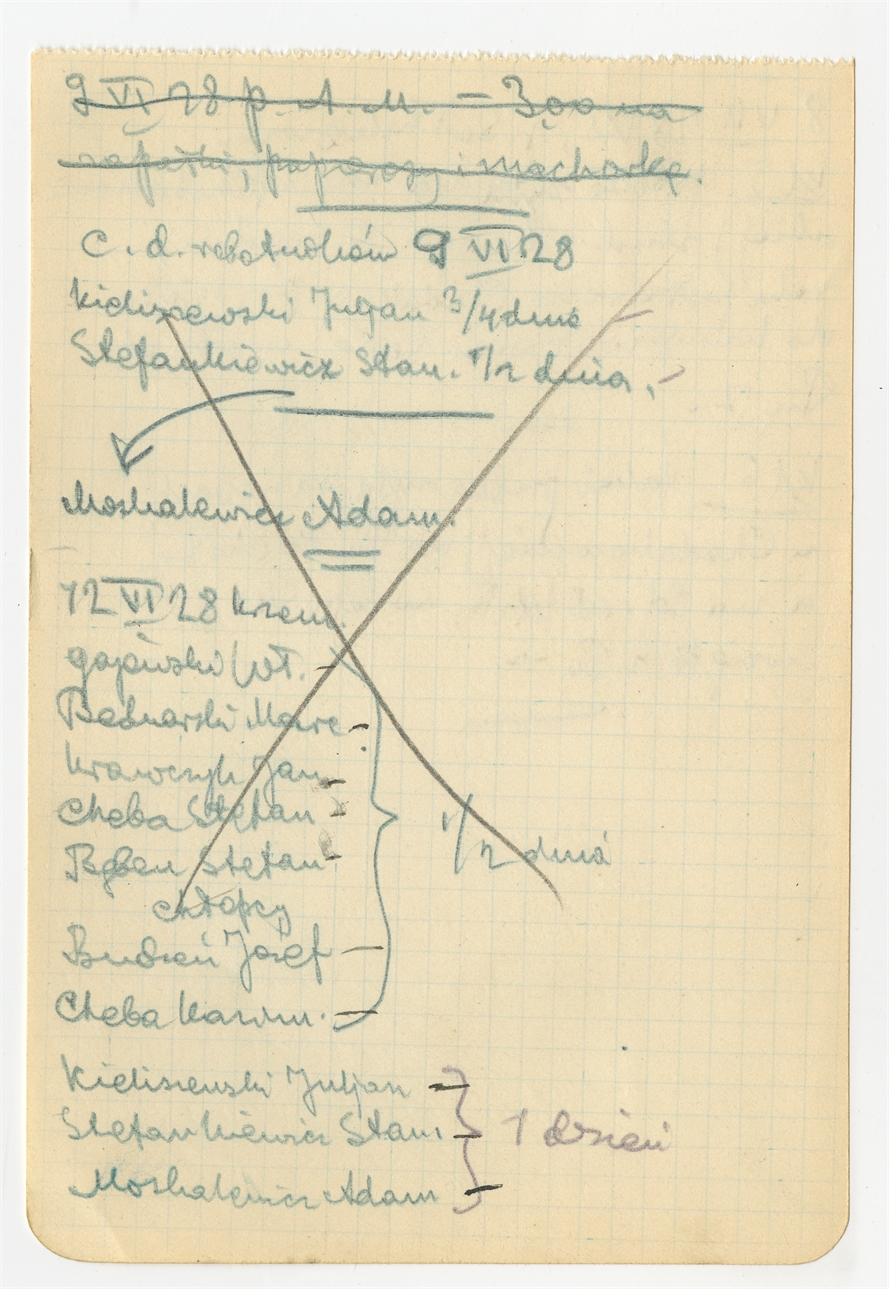 9 VI 28 p. A. M. — 3,00 na
zapałki, papierosy i machorkę.
c. d. robotników 9 VI 28
Kieliszewski Juljan 3/4 dnia —
Stefankiewicz Stan. 1/2 dnia. —
Moskalewicz Adam.
12 VI 28 krzem.
Gajewski Wł. —
Bednarski Marc. —
Krawczyk Jan —
Cheba Stefan —
Bęben Stefan —
1/2 dnia
chłopcy
Budzeń Józef —
Cheba Kazim. —
Kieliszewski Juljan —
Stefankiewicz Stan. — 1 dzień
Moskalewicz Adam —